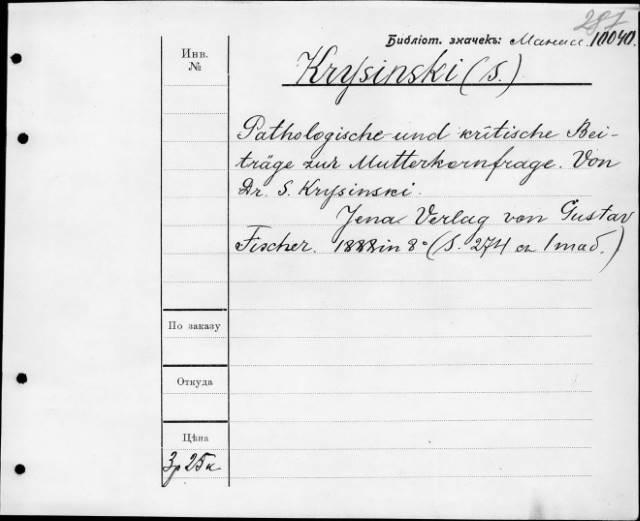 281
Библіот. значекъ: 10040.
Инв.
№
Krysinski (S.)
Pathologische und kritische Bei-
träge zur Mutterkornfrage. Von
Dr. S. Krysinski.
Jena. Verlag von Gustav
Fischer. 1888 in 8° (S. 274 on 1 таб.)
По заказу
Откуда
Цѣна
3р 25к